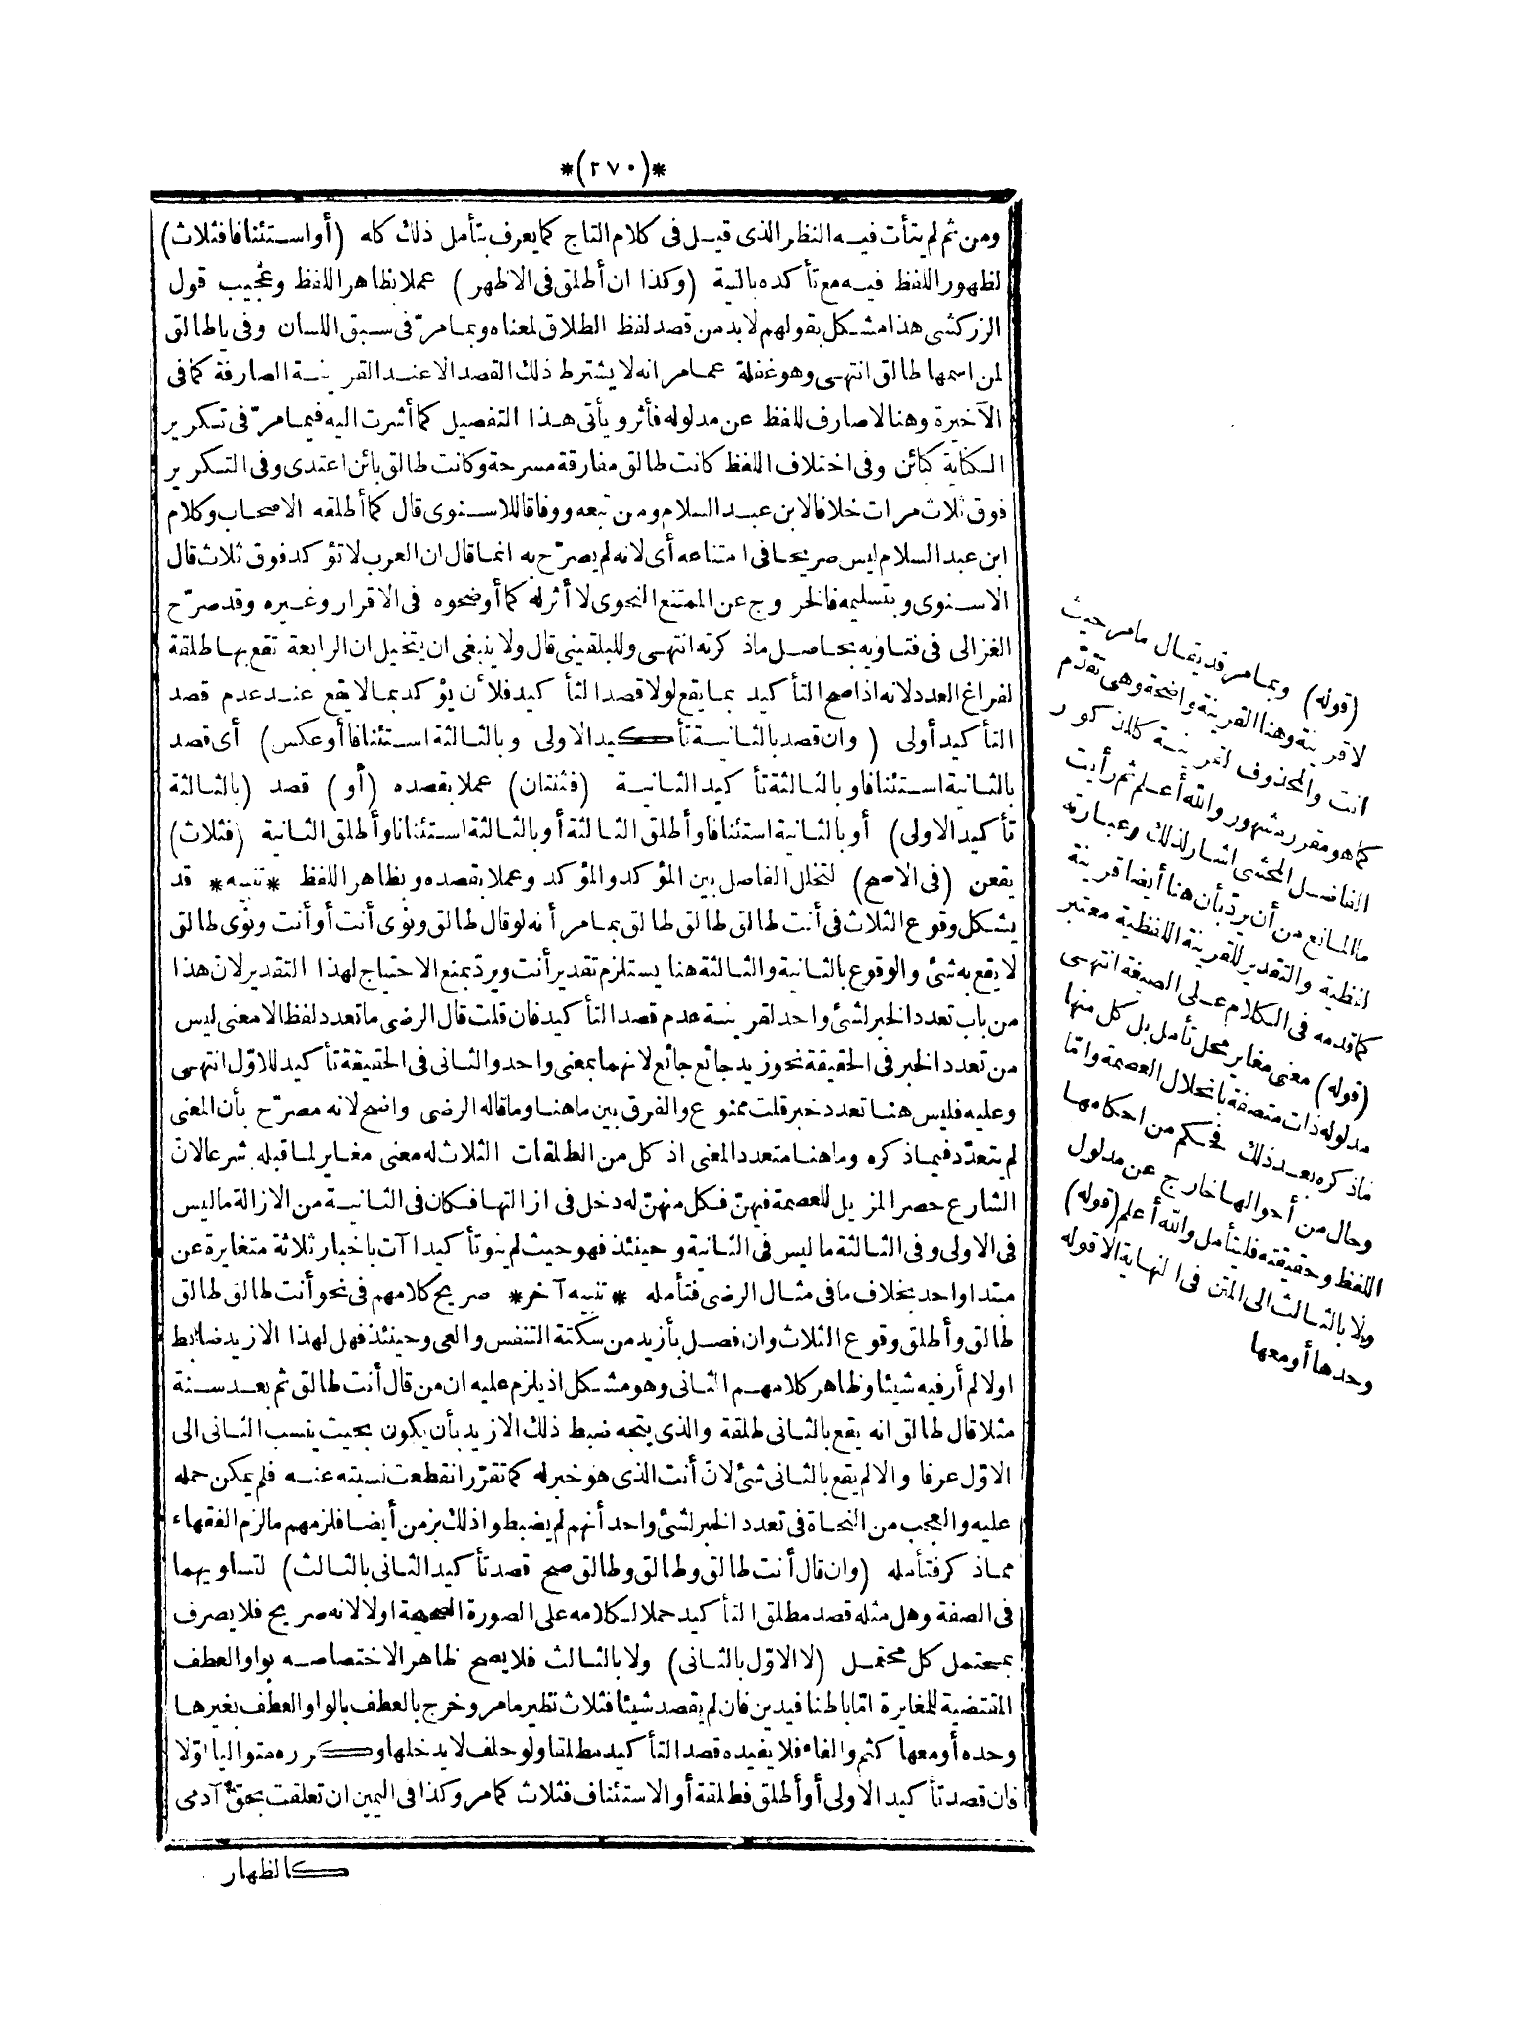 *(٢٧٠)*
ومن ثم لم يتأت فيه النظر الذى قيل فى كلام التاج كما يعرف بتأمل ذلك كله (أو استئنافا فثلاث)
لظهور اللفظ فيه مع تأكده بالنية (وكذا ان أطلق فى الاظهر) عملا بظاهر اللفظ وعجيب قول
الزركشى هذا مشكل بقولهم لا بد من قصد لفظ الطلاق لمعناه وبما مرّ فى سبق اللسان وفى يا طالق
لمن اسمها طالق انتهى وهو غفلة عما مر انه لا يشترط ذلك القصد الا عند القرينة الصارفة كما فى
الآخيرة وهنا لا صارف للفظ عن مدلوله فأثر ويأتى هذا التفصيل كما أشرت اليه فيما مرّ فى تكرير
الكناية كبائن وفى اختلاف اللفظ كانت طالق مفارقة مسرحة وكانت طالق بائن اعتدى وفى التكرير
فوق ثلاث مرات خلافا لابن عبد السلام ومن تبعه ووفاقا للاسنوى قال كما أطلقه الاصحاب وكلام
ابن عبد السلام ليس صريحا فى امتناعه أى لانه لم يصرّح به انما قال ان العرب لا تؤكد فوق ثلاث قال
الاسنوى وبتسليمه فالخروج عن الممتنع النحوى لا أثر له كما أوضحوه فى الاقرار وغيره وقد صرّح
الغزالى فى فتاويه بحاصل ما ذكرته انتهى وللبلقينى قال ولا ينبغى ان يتخيل ان الرابعة تقع بها طلقة
لفراغ العدد لانه اذا صح التأكيد بما يقع لولا قصد التأكيد فلأن يؤكد بما لا يقع عند عدم قصد
التأكيد أولى (وان قصد بالثانية تأكيد الاولى وبالثالثة استئنافا أو عكس) أى قصد
بالثانية استئنافا وبالثالثة تأكيد الثانية (فثنتان) عملا بقصده (أو) قصد (بالثالثة
تأكيد الاولى) أو بالثانية استئنافا وأطلق الثالثة أو بالثالثة استئنافا وأطلق الثانية (فثلاث)
يقعن (فى الاصح) لتخلل الفاصل بين المؤكد والمؤكد وعملا بقصده وبظاهر اللفظ *تنبيه* قد
يشكل وقوع الثلاث فى أنت طالق طالق طالق بما مر أنه لو قال طالق ونوى أنت أو أنت ونوى طالق
لا يقع به شئ والوقوع بالثانية والثالثة هنا يستلزم تقدير أنت ويردّ بمنع الاحتياج لهذا التقدير لانّ هذا
من باب تعدد الخبر لشئ واحد لقرينة عدم قصد التأكيد فان قلت قال الرضى ما تعدد لفظا لا معنى ليس
من تعدد الخبر فى الحقيقة نحو زيد جائع جائع لانهما بمعنى واحد والثانى فى الحقيقة تأكيد للاوّل انتهى
وعليه فليس هنا تعدد خبر قلت ممنوع والفرق بين ما هنا وما قاله الرضى واضح لانه مصرّح بأن المعنى
لم يتعدّد فيما ذكره وما هنا متعدد المعنى اذ كل من الطلقات الثلاث له معنى مغاير لما قبله شرعا لانّ
الشارع حصر المزيل للعصمة فيهنّ فكل منهنّ له دخل فى ازالتها فكان فى الثانية من الازالة ما ليس
فى الاولى وفى الثالثة ما ليس فى الثانية وحينئذ فهو حيث لم ينو تأكيدا آت باخبار ثلاثة متغايرة عن
مبتدا واحد بخلاف ما فى مثال الرضى فتأمله *تنبيه آخر* صريح كلامهم فى نحو أنت طالق طالق
طالق وأطلق وقوع الثلاث وان فصل بأزيد من سكتة التنفس والعى وحينئذ فهل لهذا الازيد ضابط
اولا لم أر فيه شيئا وظاهر كلامهم الثانى وهو مشكل اذ يلزم عليه ان من قال أنت طالق ثم بعد سنة
مثلا قال طالق انه يقع بالثانى طلقة والذى يتجه ضبط ذلك الازيد بأن يكون بحيث ينسب الثانى الى
الاوّل عرفا والا لم يقع بالثانى شئ لانّ أنت الذى هو خبر له كما تقرّر انقطعت نسبته عنه فلم يمكن حمله
عليه والعجب من النحاة فى تعدد الخبر لشئ واحد أنهم لم يضبطوا ذلك بزمن أيضا فلزمهم ما لزم الفقهاء
مما ذكر فتأمله (وان قال أنت طالق وطالق وطالق صح قصد تأكيد الثانى بالثالث) لتساويهما
فى الصفة وهل مثله قصد مطلق التأكيد حملا لكلامه على الصورة الصحيحة اولا لانه صريح فلا يصرف
بمحتمل كل محتمل (لا الاوّل بالثانى) ولا بالثالث فلا يصح ظاهر الاختصاصه بواو العطف
المقتضية للمغايرة امّا باطنا فيدين فان لم يقصد شيئا فثلاث نظير ما مر وخرج بالعطف بالواو العطف بغيرها
وحده أو معها كثم والفاء فلا يفيده قصد التأكيد مطلقا ولو حلف لا يدخلها وكرره متواليا اوّلا
فان قصد تأكيد الاولى أو أطلق فطلقة أو الاستئناف فثلاث كما مر وكذا فى اليمين ان تعلقت بحق آدمى
كالظهار
(قوله) وبما مر قد يقال ما مر حيث
لا قرينة وهنا القرينة واضحة وهى تقدّم
انت والمحذوف لقرينة كالمذكور
كما هو مقرر مشهور والله أعلم ثم رأيت
الفاضل المحشى اشار لذلك وعبارته
ما المانع من أن يردّ بأن هنا أيضا قرينة
لفظية والتقدير للقرينة اللفظية معتبر
كما قدمه فى الكلام على الصيغة انتهى
(قوله) معنى مغاير محل تأمل بل كل منها
مدلوله ذات متصفة بانحلال العصمة وامّا
ما ذكره بعد ذلك فحكم من احكامها
وحال من أحوالها خارج عن مدلول
اللفظ وحقيقته فليتأمل والله أعلم (قوله)
ولا بالثالث الى المتن فى النهاية الا قوله
وحدها أو معها